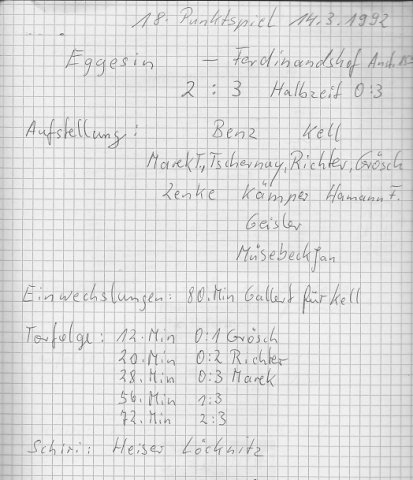 18. Punktspiel 14.3.1992
Eggesin – Ferdinandshof Anst.
2 : 3 Halbzeit 0:3
Aufstellung: Benz Kell
Marek T., Tschernay, Richter, Grösch
Zenke Kämper Hamann F.
Geisler
Müsebeck Jan
Einwechslungen: 80. Min Gallert für Kell
Torfolge: 12. Min 0:1 Grösch
20. Min 0:2 Richter
28. Min 0:3 Marek
56. Min 1:3
72. Min 2:3
Schiri: Heiser Löcknitz